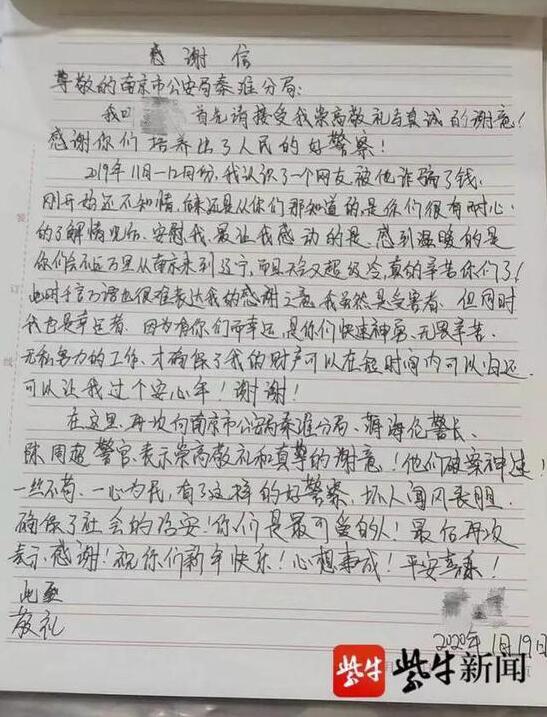 感谢信
尊敬的南京市公安局秦淮分局:
我叫 首先请接受我崇高敬礼与真诚的谢意!
感谢你们培养出了人民的好警察!
2019年11月-12月份,我认识了一个网友被他诈骗了钱.
刚开始还不知情,后来还是从你们那知道的,是你们很有耐心
的了解情况后.安慰我.最让我感动的是,感到温暖的是
你们不远万里从南京来到辽宁,而且天冷又超级冷,真的辛苦你们了!
此时千言万语也很难表达我的感谢之意,我虽然是受害者.但同时
我也是幸运者.因为有你们而幸运,是你们快速神勇、无畏辛苦.
无私努力的工作.才确保了我的财产可以在短时间内可以归还.
可以让我过个安心年!谢谢!
在这里,再次向南京市公安局秦淮分局、海伦警长、
陈周超警官.表示崇高敬礼和真挚的谢意!他们破案神速!
一丝不苟、一心为民,有了这样的好警察,坏人闻风丧胆.
确保了社会的治安!你们是最可爱的人!最后再次
表示感谢!祝你们新年快乐!心想事成!平安喜乐!
此致
敬礼
2020年1月19日
紫牛 紫牛新闻
装
订
线